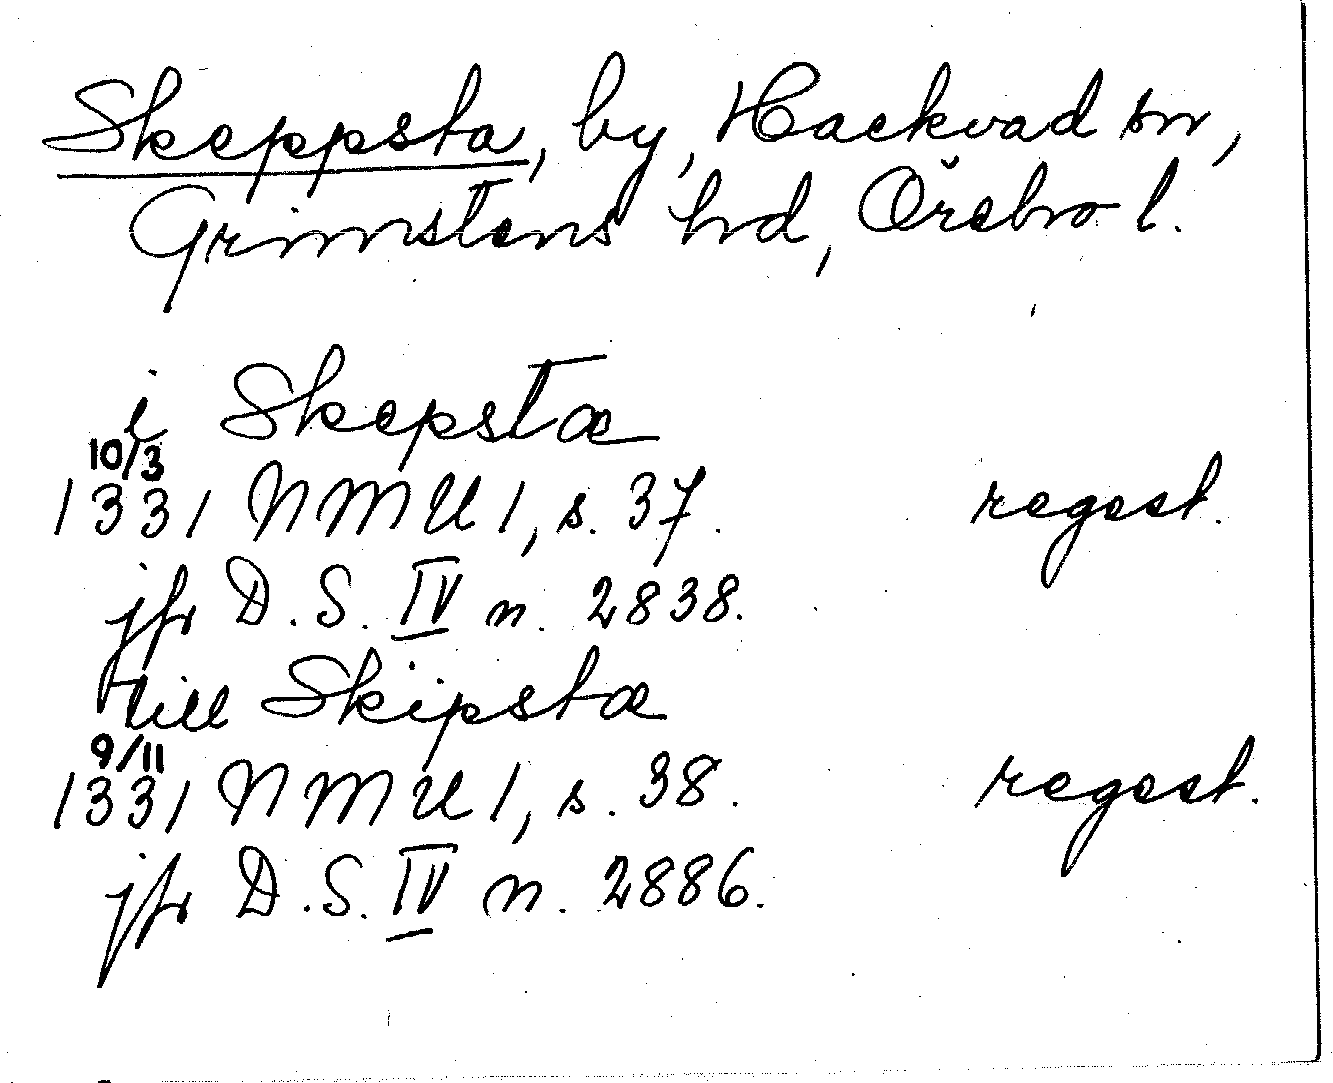 Skeppsta, by, Hackvad sn,
Grimstens hd, Örebro l.
i Skepstæ
10/3
1331 NMU 1, s. 37. regest.
jfr D.S. IV n. 2838.
till Skipstæ
9/11
1331 NMU 1, s. 38. regest.
jfr D.S. IV n. 2886.